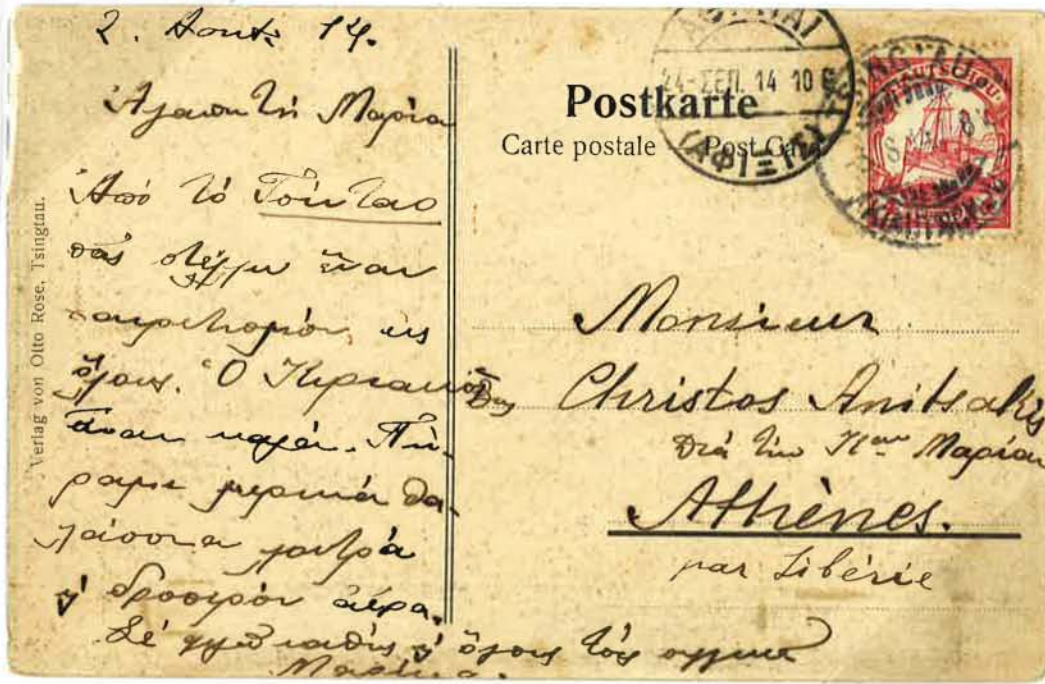 2. Aout. 14.
Ἀγαπητὴ Μαρία
Ἀπὸ τὸ Τσίνταο
σᾶς στέλλω ἕναν
χαιρετισμὸν εἰς
ὅλους. Ὁ Κυριακὸς
εἶναι καλά. Πή-
ραμε μερικὰ θα-
λάσσια λουτρά
δροσερὸν ἀέρα.
Σὲ ὅλους τοὺς
Μαρίκα.
Verlag von Otto Rose, Tsingtau.
Postkarte
Carte postale Post Card
24-ΣΕΠ. 14 10
(ΑΦΙΞΙΣ)
TSINGTAU
KIAUTSCHOU
Monsieur
Christos Anitsakis
διὰ τὴν Μαρίαν
Athènes.
par Sibérie